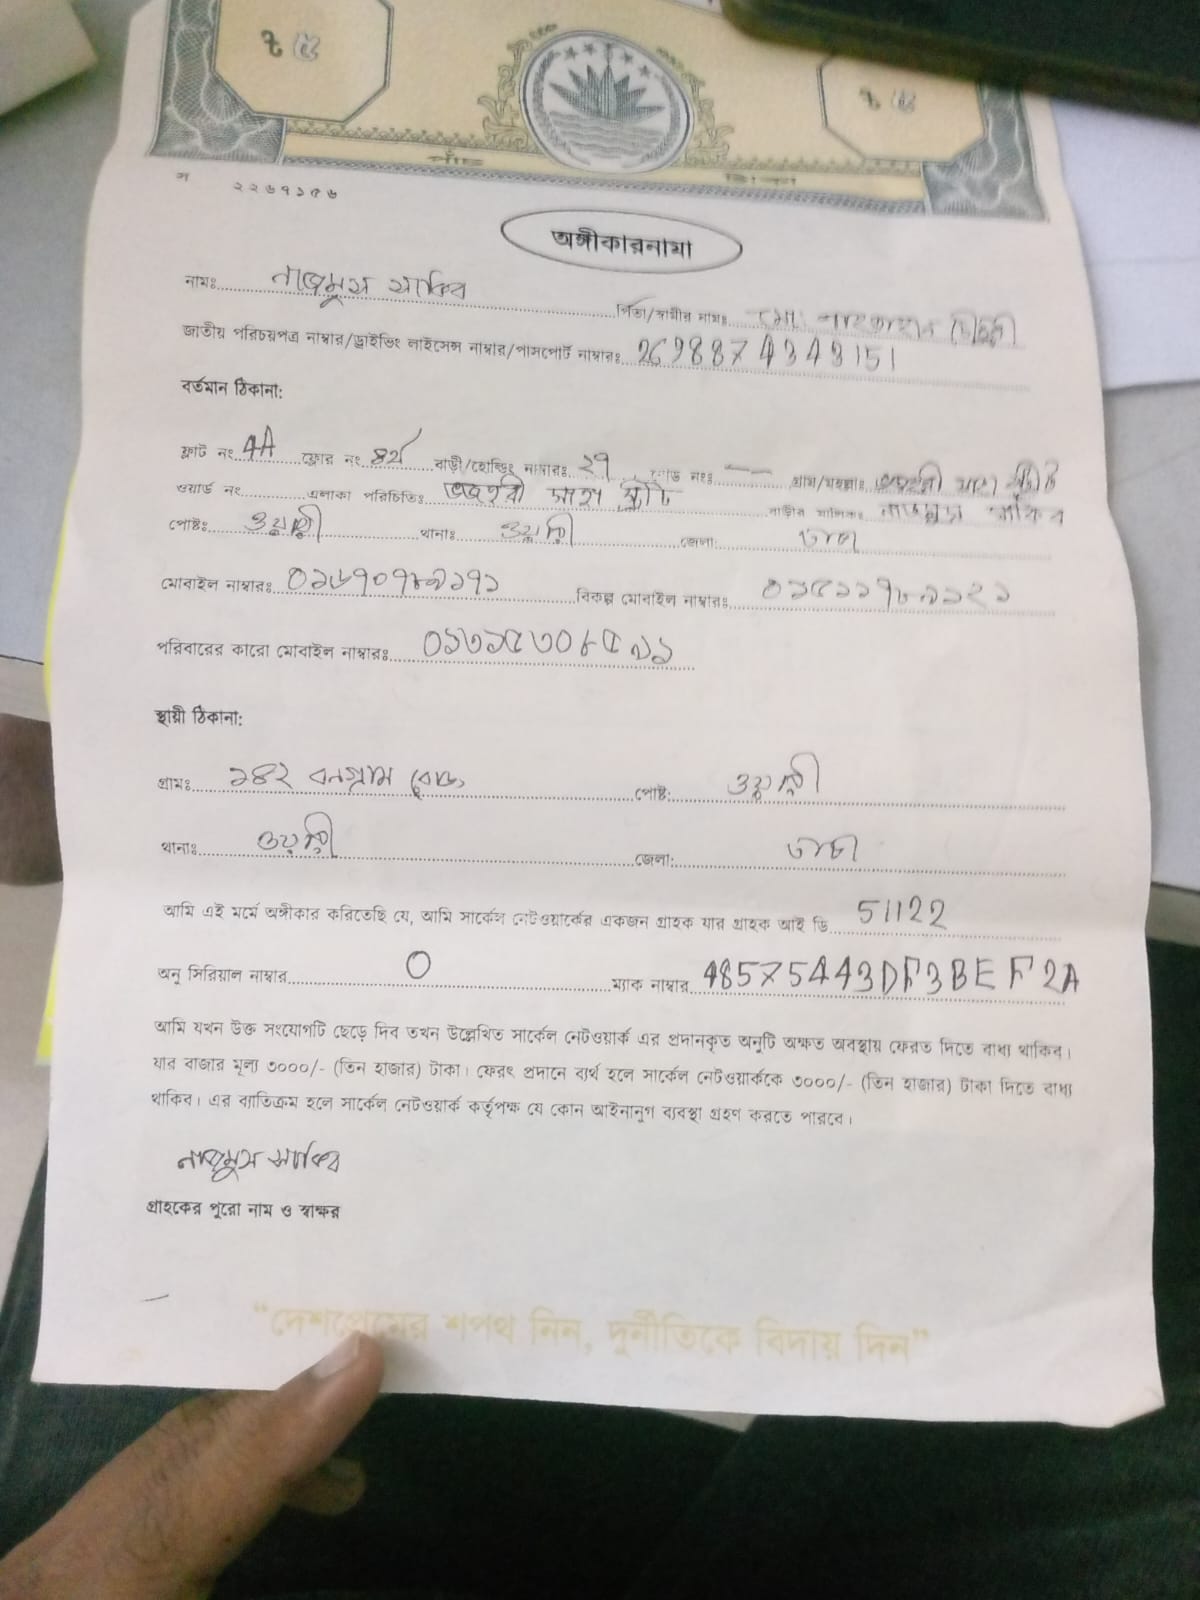 ৳ ৫ ৳ ৫
পাঁচ টাকা
ল ২২৬৭১৫৬
অঙ্গীকারনামা
নামঃ নাজমুস সাকিব পিতা/স্বামীর নামঃ মোঃ
জাতীয় পরিচয়পত্র নাম্বার/ড্রাইভিং লাইসেন্স নাম্বার/পাসপোর্ট নাম্বারঃ 2698874343151
বর্তমান ঠিকানা:
ফ্লাট নং 4A ফ্লোর নং ৪র্থ বাড়ী/হোল্ডিং নাম্বারঃ ২৭ রোড নংঃ — গ্রাম/মহল্লাঃ
ওয়ার্ড নং এলাকা পরিচিতিঃ সাহা স্ট্রীট বাড়ীর মালিকঃ নাজমুস সাকিব
পোষ্টঃ ওয়ারী থানাঃ ওয়ারী জেলা: ঢাকা
মোবাইল নাম্বারঃ ০১৬৭০৭৮৯১৭১ বিকল্প মোবাইল নাম্বারঃ ০১৫১১৭৮৯১২১
পরিবারের কারো মোবাইল নাম্বারঃ ০১৩১৫৩০৮৫৯১
স্থায়ী ঠিকানা:
গ্রামঃ ১৪২ বনগ্রাম রোড পোষ্ট: ওয়ারী
থানাঃ ওয়ারী জেলা: ঢাকা
আমি এই মর্মে অঙ্গীকার করিতেছি যে, আমি সার্কেল নেটওয়ার্কের একজন গ্রাহক যার গ্রাহক আই ডি 51122
অনু সিরিয়াল নাম্বার 0 ম্যাক নাম্বার 48575443DF3BEF2A
আমি যখন উক্ত সংযোগটি ছেড়ে দিব তখন উল্লেখিত সার্কেল নেটওয়ার্ক এর প্রদানকৃত অনুটি অক্ষত অবস্থায় ফেরত দিতে বাধ্য থাকিব।
যার বাজার মূল্য ৩০০০/- (তিন হাজার) টাকা। ফেরৎ প্রদানে ব্যর্থ হলে সার্কেল নেটওয়ার্ককে ৩০০০/- (তিন হাজার) টাকা দিতে বাধ্য
থাকিব। এর ব্যতিক্রম হলে সার্কেল নেটওয়ার্ক কর্তৃপক্ষ যে কোন আইনানুগ ব্যবস্থা গ্রহণ করতে পারবে।
নাজমুস সাকিব
গ্রাহকের পুরো নাম ও স্বাক্ষর
"দেশপ্রেমের শপথ নিন, দুর্নীতিকে বিদায় দিন"